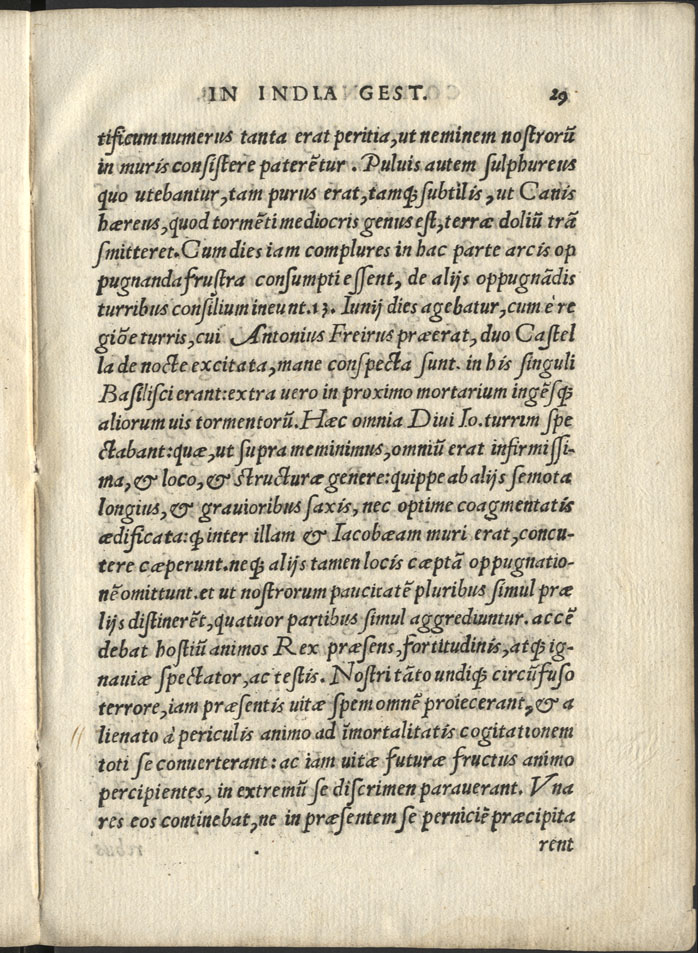 IN INDIA GEST. 29
tificum numerus tanta erat peritia, ut neminem nostrorũ
in muris consistere paterẽtur. Puluis autem sulphureus
quo utebantur, tam purus erat, tamq́; subtilis, ut Canis
hæreus, quod tormẽti mediocris genus est, terræ doliũ trã
smitteret. Cum dies iam complures in hac parte arcis op
pugnanda frustra consumpti essent, de alijs oppugnãdis
turribus consilium ineunt. 13. Iunij dies agebatur, cum è re
giõe turris, cui Antonius Freirus præerat, duo Castel
la de nocte excitata, mane conspecta sunt. in his singuli
Basilisci erant: extra uero in proximo mortarium ingẽsq́;
aliorum uis tormentorũ. Hæc omnia Diui Io. turrim spe
ctabant: quæ, ut supra meminimus, omniũ erat infirmissi-
ma, & loco, & structuræ genere: quippe ab alijs semota
longius, & grauioribus saxis, nec optime coagmentatis
ædificata: q̃ inter illam & Iacobæam muri erat, concu-
tere cæperunt. neq́; alijs tamen locis cæptã oppugnatio-
nẽ omittunt. et ut nostrorum paucitatẽ pluribus simul præ
lijs distinerẽt, quatuor partibus simul aggrediuntur. accẽ
debat hostiũ animos Rex præsens, fortitudinis, atq́; ig-
nauiæ spectator, ac testis. Nostri tãto undiq́; circũfuso
terrore, iam præsentis uitæ spem omnẽ proiecerant, & a
lienato à periculis animo ad ĩmortalitatis cogitationem
toti se conuerterant: ac iam uitæ futuræ fructus animo
percipientes, in extremũ se discrimen parauerant. Vna
res eos continebat, ne in præsentem se perniciẽ præcipita
rent